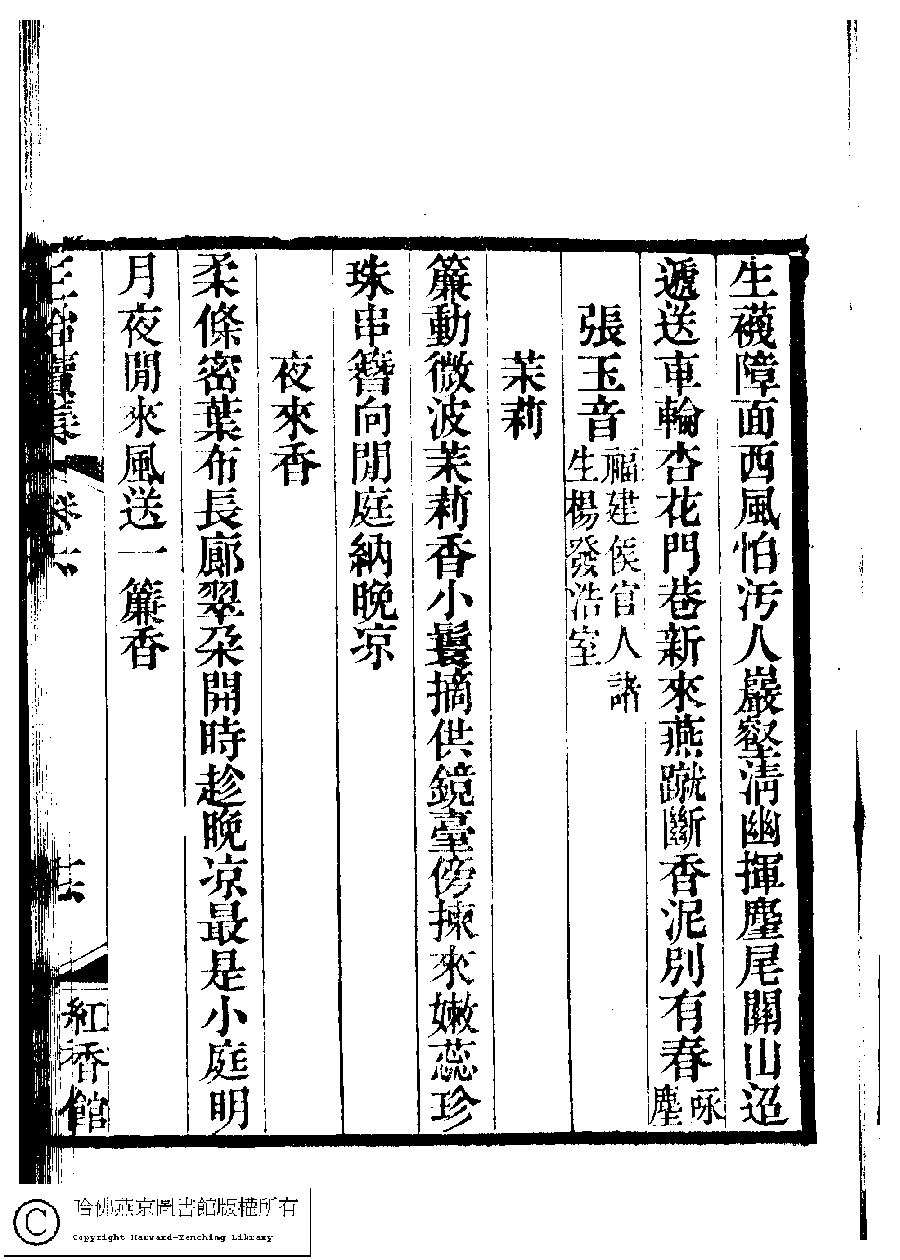 生襪障面西風怕汚人巖壑淸幽揮麈尾關山迢
遞送車輪杏花門巷新來燕蹴斷香泥別有春詠塵
張玉音福建侯官人諸生楊發浩室
茉莉
簾動微波茉莉香小鬟摘供鏡臺傍揀來嫩蕊珍
珠串簪向閒庭納晚凉
夜來香
柔條密葉布長廊翠朶開時趁晚凉最是小庭明
月夜閒來風送一簾香
紅香館
哈佛燕京圖書館版權所有
Copyright Harvard-Yenching Library